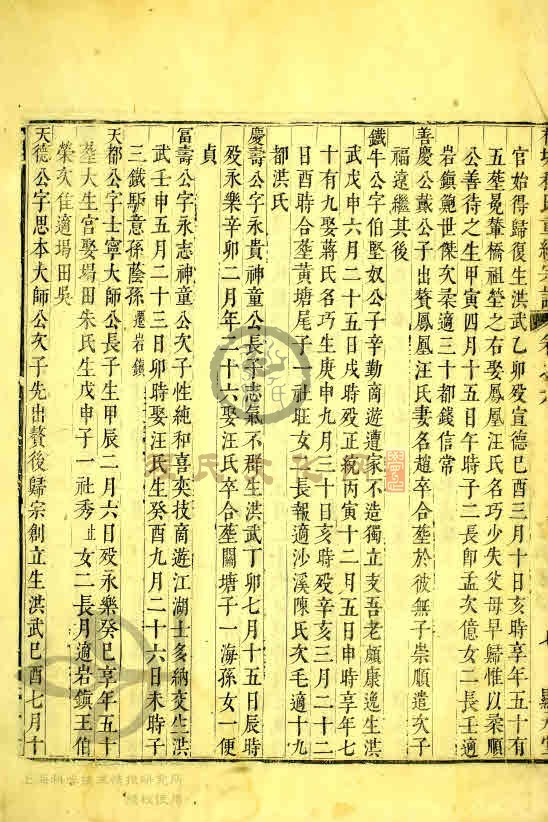 官始得歸復生洪武乙卯歿宣德巳酉三月十日亥時享年五十有
五塟晃輋橋祖塋之右娶鳳凰汪氏名巧少失父母早歸惟以柔順
公善待之生甲寅四月十五日午時子二長即孟次億女二長壬適
岩鎭鮑世傑次柰適三十都錢信常
善慶公戴公子出贅鳳凰汪氏妻名趙卒合塟於彼無子崇順遣次子
福遠繼其後
鐵牛公字伯堅奴公子辛勤商遊遭家不造獨立支吾老頗康逸生洪
武戊申六月二十五日戌時歿正統丙寅十二月五日申時享年七
十有九娶蔣氏名巧生庚申九月三十日亥時歿辛亥三月二十二
日酉時合塟黃塘尾子一社旺女二長報適沙溪陳氏次毛適十九
都洪氏
慶壽公字永貴神童公長子志氣不群生洪武丁卯七月十五日辰時
歿永樂辛卯二月年二十六娶汪氏卒合塟關塘子一海孫女一便
貞
富壽公字永志神童公次子性純和喜奕技商遊江湖士多納交生洪
武壬申五月二十三日卯時娶汪氏生癸酉九月二十六日未時子
三鐵馿意孫蔭孫遷岩鎭
天都公字士寧大師公長子生甲辰二月六日歿永樂癸巳享年五十
塟大生官娶塲田朱氏生戊申子一社秀止女二長月適岩鎭王伯
榮次隹適塲田吳
天德公字思本大師公次子先出贅後歸宗創立生洪武巳酉七月十
上海科學技術情報研究所